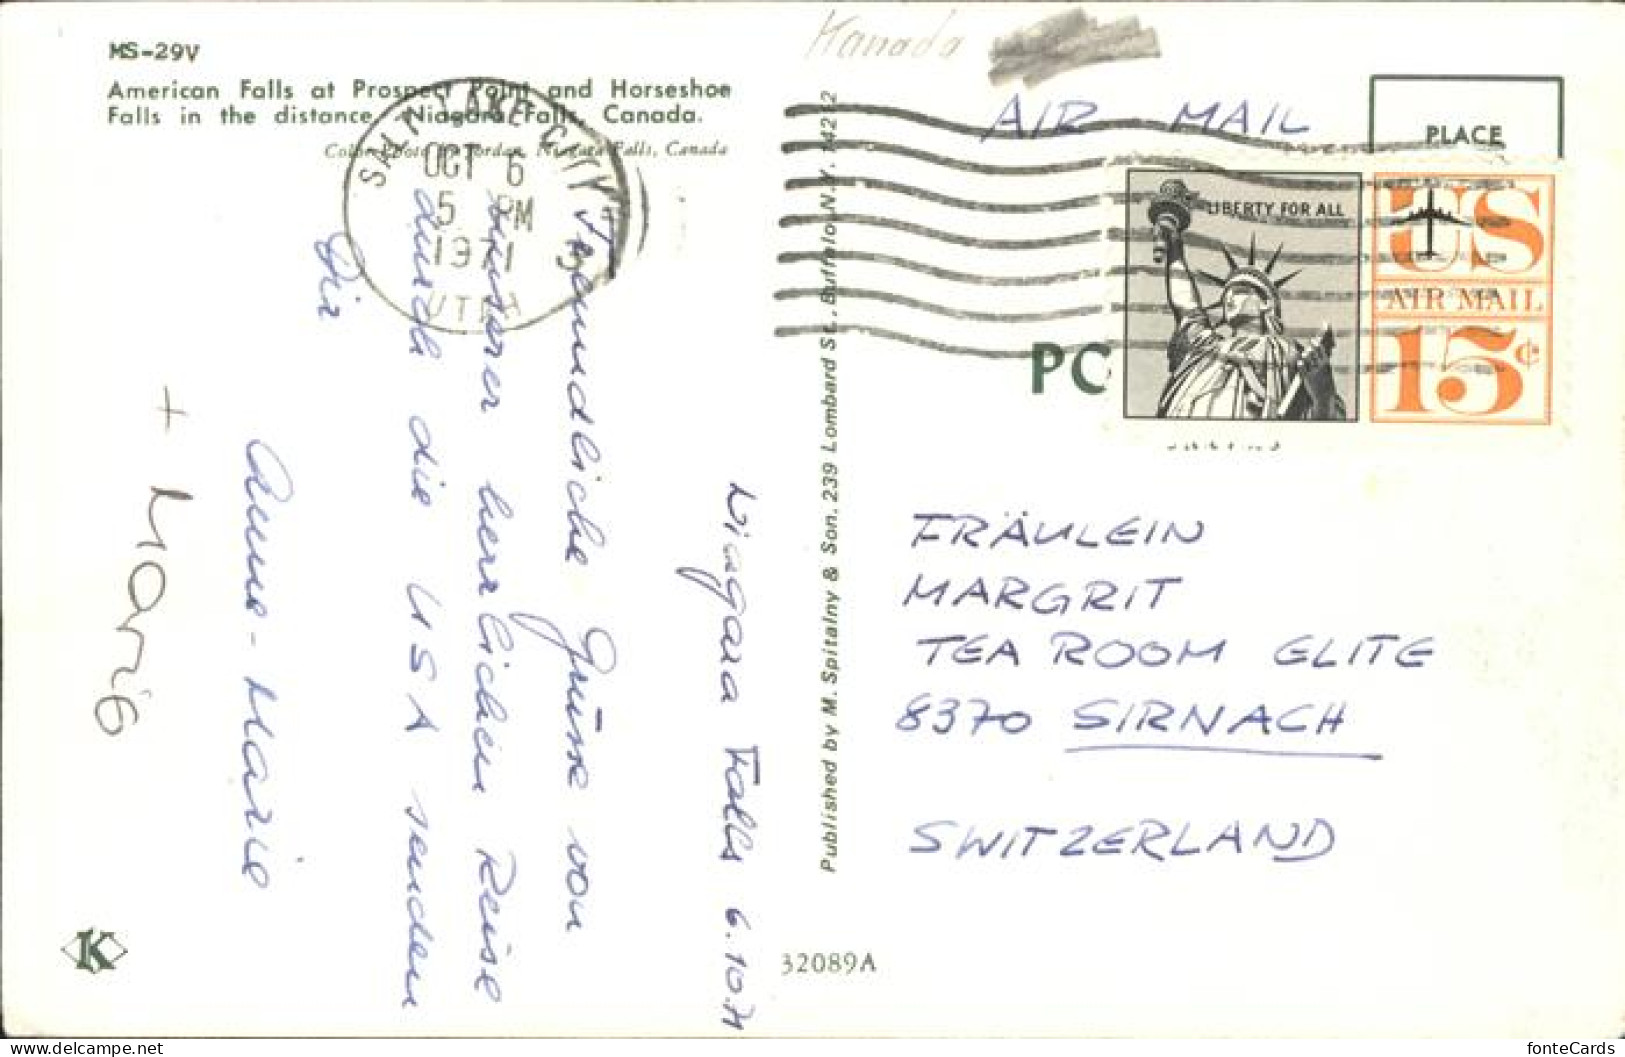 MS-29V
American Falls at Prospect Point and Horseshoe
Falls in the distance, Niagara Falls, Canada.
Color Photo by Jordan, Niagara Falls, Canada
Kanada
AIR MAIL
PLACE
SALT LAKE CITY
OCT 6
5 PM
1971
UTAH
LIBERTY FOR ALL
US
AIR MAIL
15¢
PO
Niagara Falls 6.10.71
Freundliche Grüsse von
unserer herrlichen Reise
durch die USA senden
Dir
Anne-Marie
+ Mario
Published by M. Spitalny & Son. 239 Lombard St., Buffalo, N.Y. 14212
FRÄULEIN
MARGRIT
TEA ROOM ELITE
8370 SIRNACH
SWITZERLAND
K
32089A
fonteCards